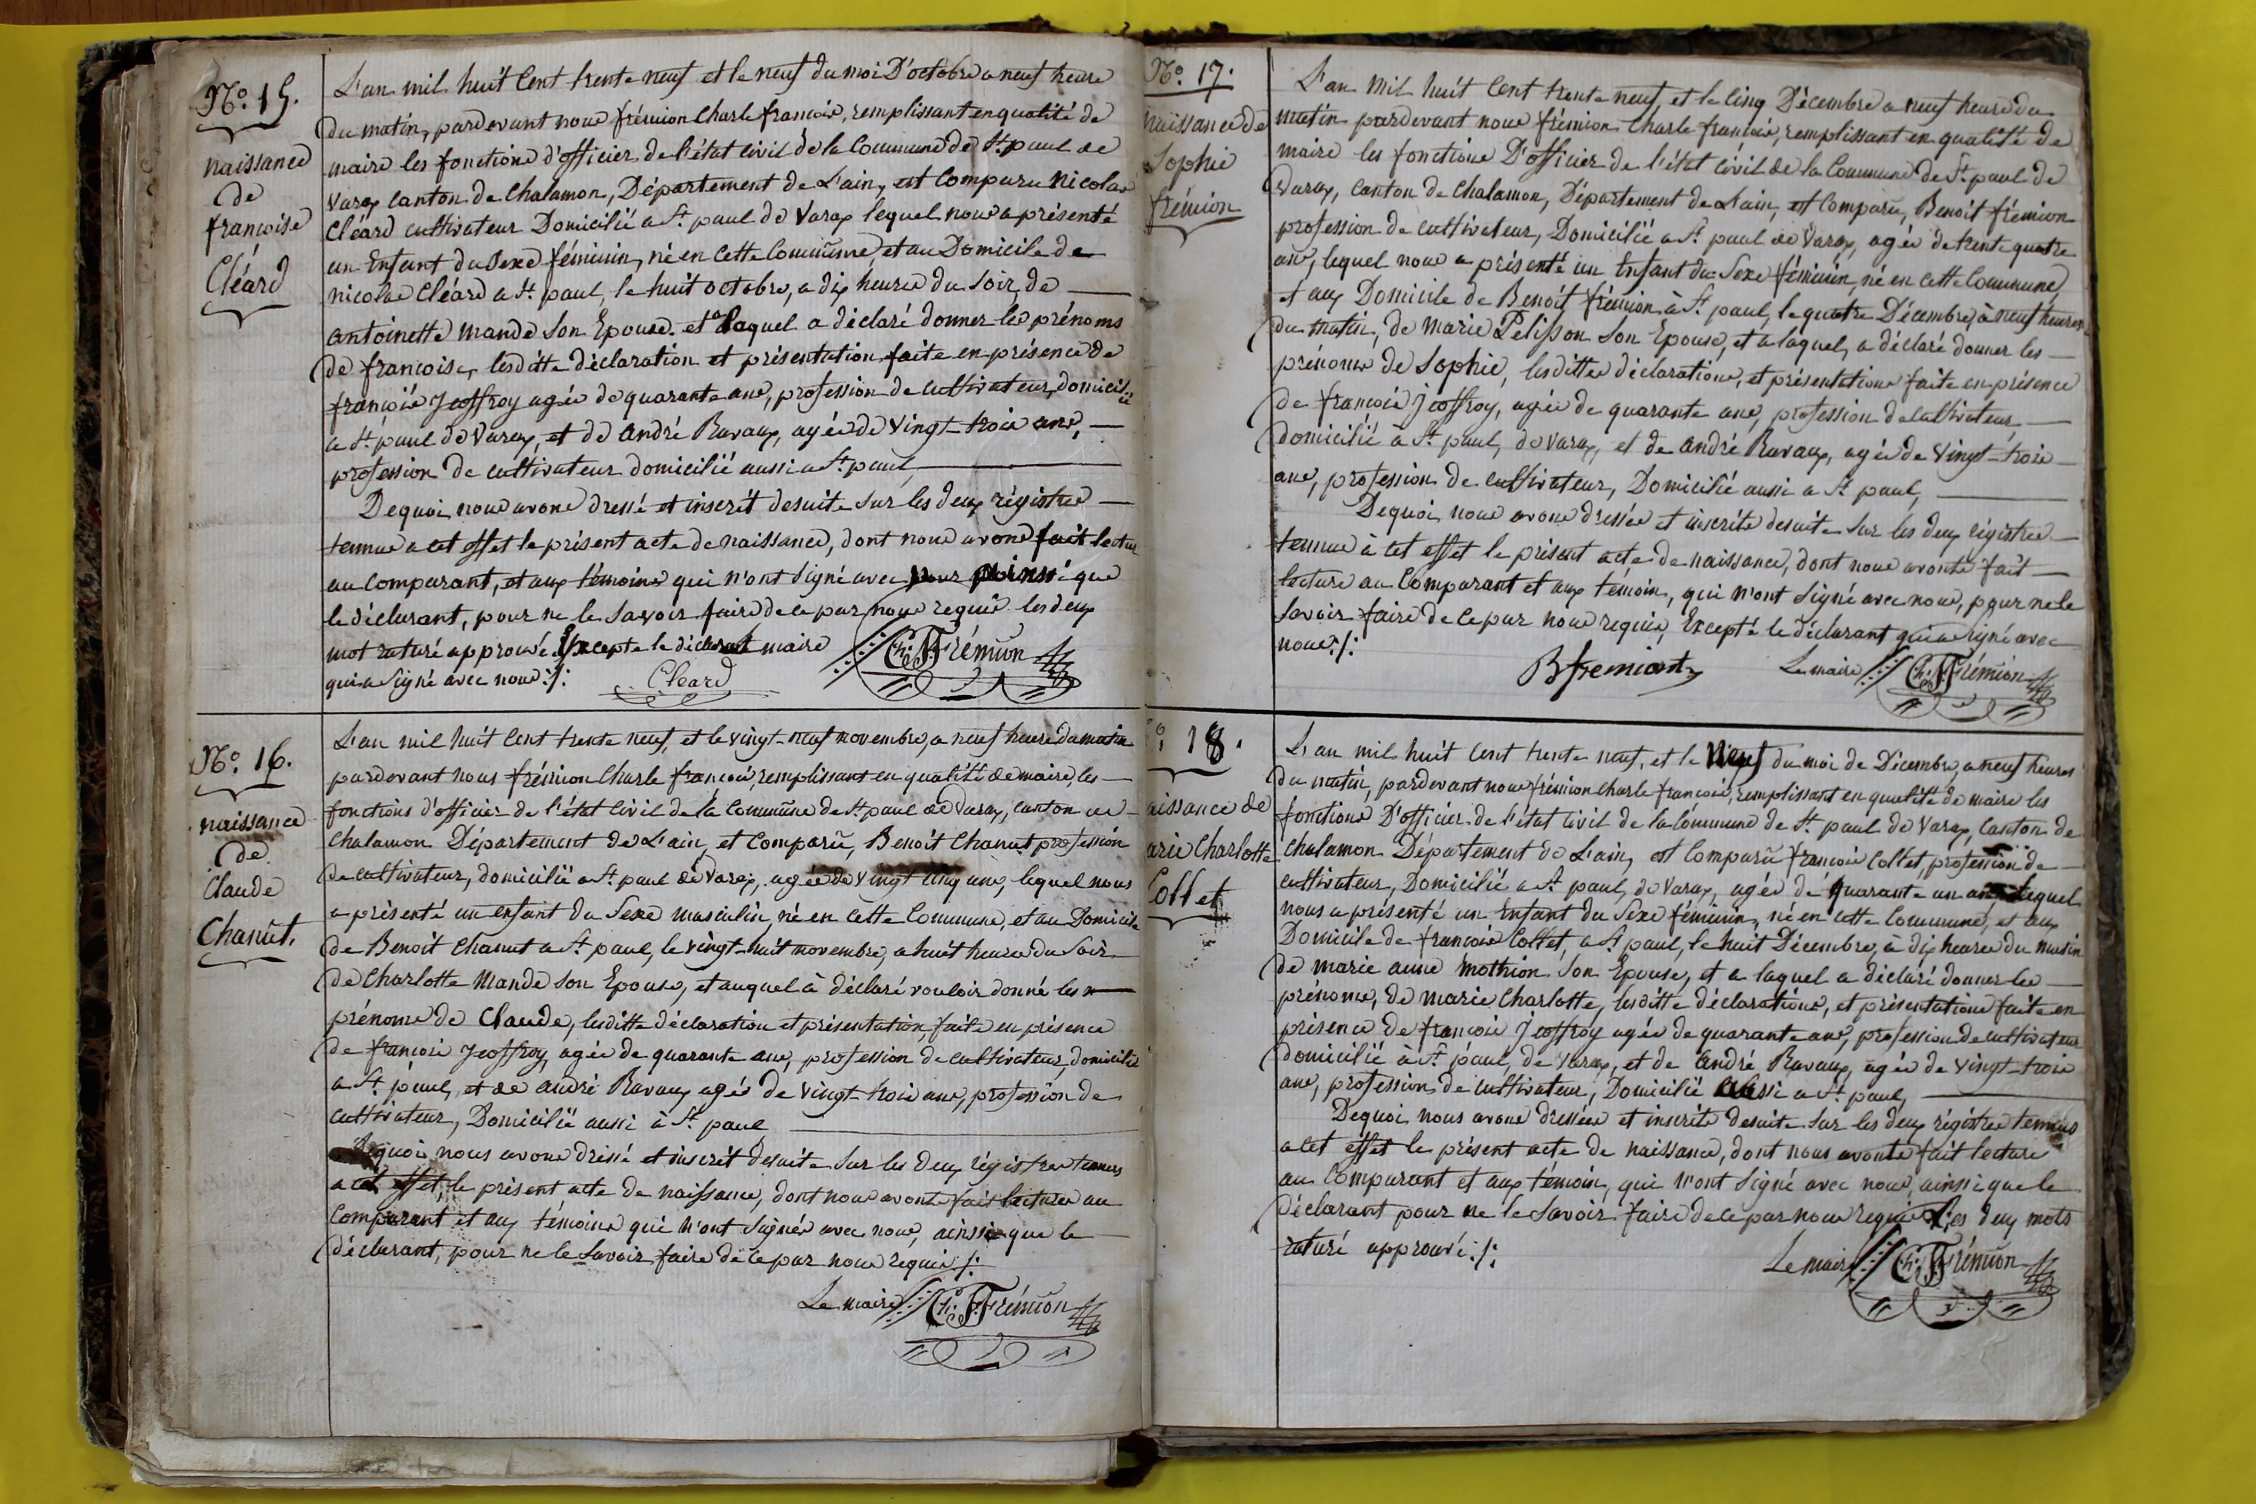 N.o 15.
naissance
de
françoise
Cléard
L'an mil huit Cent trente neuf et le neuf du moi D'octobre a neuf heure
du matin, pardevant nous frémion Charle françois, remplissant en qualité de
maire les fonctions d'officier de l'état Civil de la Commune de St. paul de
Varax Canton de Chalamon, Département de L'ain, est Comparu Nicolas
Cléard cultivateur Domicilié a St. paul de Varax lequel nous a présenté
un Enfant du Sexe féminin, né en cette Commune, et au Domicile de
nicolas Cléard a St. paul, le huit octobre, a dix heures du Soir, de
antoinette mande Son Epouse. et a laquel a déclaré donner les prénoms
de françoise, lesditte déclaration et présentation faite en présence de
françois Jeoffroy agée de quarante ans, profession de Cultivateur, domicilié
a St. paul de Varax, et de andré Ravaux, agée de Vingt-trois ans,
profession de cultivateur domicilié aussi a St. paul,
Dequoi nous avons dressé et inscrit desuite Sur les deux régistres
tennus a cet effet le présent acte de naissance, dont nous avons fait lecture
au Comparant, et aux témoins qui n'ont Signé avec nous que
le déclarant, pour ne le Savoir faire de ce par nous requis les deux
mot raturé approuvé. Excepte le déclarant maire Ch. F. Frémion
qui a Signé avec nous :/: Cleard
N.o 16.
naissance
de
Claude
Chanut.
L'an mil huit Cent trente neuf, et le vingt-neuf novembre, a neuf heure du matin
pardevant nous frémion Charle françois, remplissant en qualité de maire, les
fonctions d'officier de l'état Civil de la Commune de St. paul de Varax, canton de
Chalamon Département de L'ain, est Comparu, Benoit Chanut profession
de cultivateur, domicilié a St. paul de Varax, agée de Vingt cinq ans, lequel nous
a présenté un enfant du Sexe masculin, né en cette Commune, et au Domicile
de Benoit Chanut a St. paul, le vingt-huit novembre, a huit heures du Soir
de Charlotte Mande Son Epouse, et auquel à déclaré vouloir donné les
prénoms de Claude, lesditte déclaration et présentation, faite en présence
de françois Jeoffroy, agée de quarante ans, profession de cultivateur, domicilié
a St. paul, et de andré Ravaux agée de vingt-trois ans, profession de
cultivateur, Domicilié aussi à St. paul
Dequoi nous avons dressé et inscrit desuite Sur les deux régistres tennus
a cet effet, le présent acte de naissance, dont nous avonts fait lecture au
Comparant, et aux témoins qui n'ont Signés avec nous, ainssi que le
déclarant, pour ne le Savoir faire de ce par nous requis :/:
Le maire Ch. F. Frémion
N.o 17.
naissance de
Sophie
frémion
L'an Mil huit Cent trente neuf, et le Cinq Décembre a neuf heure du
matin pardevant nous frémion Charle françois, remplissant en qualité de
maire les fonctions D'officier de l'état Civil de la Commune de St. paul de
Varax, Canton de Chalamon, Département de L'ain, est Comparu, Benoit frémion
profession de cultivateur, Domicilié a St. paul de Varax, agée de trente quatre
ans, lequel nous a présenté un Enfant du Sexe féminin, né en cette Commune
et aux Domicile de Benoit frémion à St. paul, le quatre Décembre, à neuf heures
du matin, de Marie Pelisson Son Epouse, et a laquel, a déclaré donner les
prénoms de Sophie, lesdittes déclarations, et présentations faite en présence
de françois Jeoffroy, agée de quarante ans, profession de cultivateur,
domicilié à St. paul, de Varax, et de andré Ravaux, agée de Vingt-trois
ans, profession de cultivateur, Domicilié aussi a St. paul,
Dequoi nous avons dressée et inscrite desuite Sur les deux régistres
tennus à cet effet le présent acte de naissance, dont nous avonts fait
lecture au Comparant et aux témoins, qui n'ont Signé avec nous, pour ne le
Savoir faire de ce par nous requis, Excepté le déclarant qui a Signé avec
nous :/:
B fremiont Le maire Ch. F. Frémion
o. 18.
aissance de
arie Charlotte
Collet
L'an mil huit Cent trente neuf, et le Neuf du moi de Décembre, a neuf heures
du matin, pardevant nous frémion Charle françois, remplissant en qualité de maire les
fonctions D'officier de l'état Civil de la Commune de St. paul de Varax, Canton de
Chalamon Département de L'ain, est Comparu françois Collet, profession de
cultivateur, Domicilié a St. paul, de Varax, agée de quarante un ans lequel
nous a présenté un Enfant du Sexe féminin, né en cette Commune, et aux
Domicile de françois Collet, a St. paul, le huit Décembre, à dix heures du matin
de marie anne Mothion Son Epouse, et a laquel a déclaré donner les
prénoms, de marie Charlotte, lesditte déclarations, et présentations faite en
présence de françois Jeoffroy agée de quarante ans, profession de cultivateur
domicilié à St. paul, de Varax, et de André Ravaux, agée de vingt-trois
ans, profession de cultivateur, Domicilié aussi a St. paul,
Dequoi nous avons dressée et inscrite desuite Sur les deux régistres tennus
a cet éffet le présent acte de naissance, dont nous avonts fait lecture
au Comparant et aux témoin, qui n'ont Signé avec nous, ainssi que le
déclarant pour ne le Savoir faire de ce par nous requis Les deux mots
raturé approuvé :/:
Le maire Ch. F. Frémion